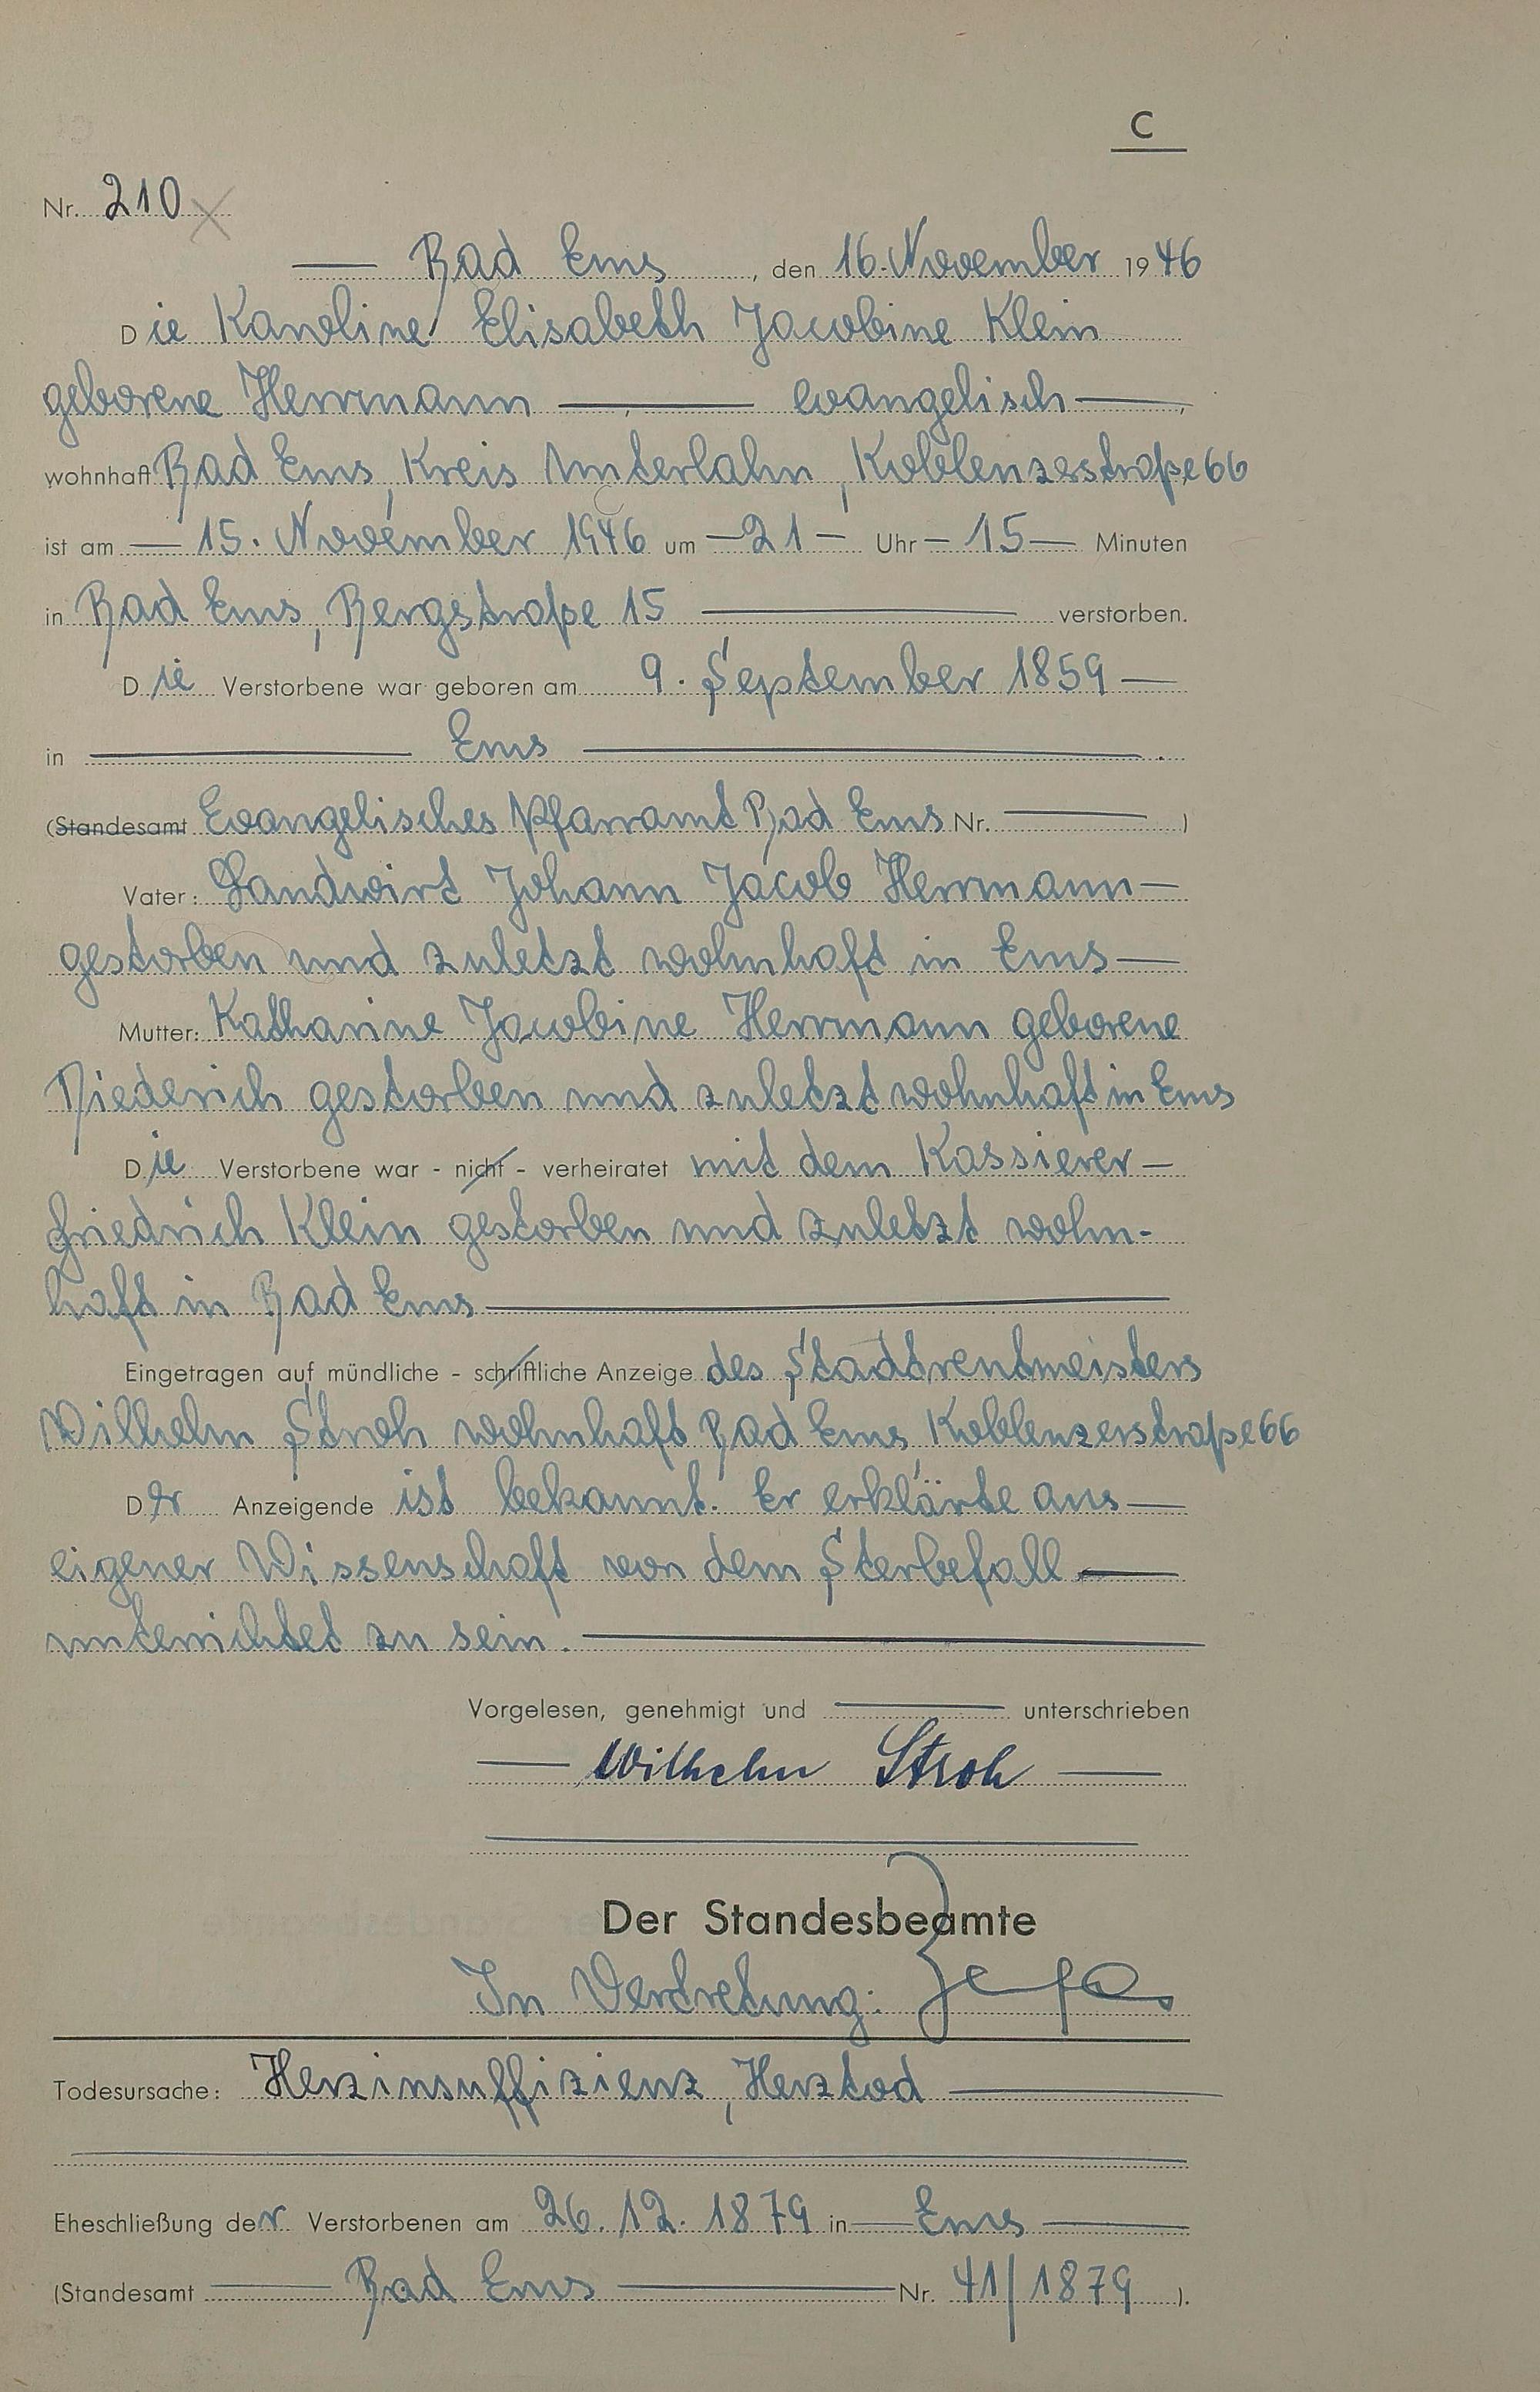 C
Nr. 210
Bad Ems, den 16. November 1946
Die Karoline Elisabeth Jacobine Klein
geborene Herrmann evangelisch,
wohnhaft Bad Ems, Kreis Unterlahn, Koblenzerstraße 66
ist am 15. November 1946 um 21 Uhr 15 Minuten
in Bad Ems, Bergstraße 15 verstorben.
Die Verstorbene war geboren am 9. September 1859
in Ems.
(Standesamt Evangelisches Pfarramt Bad Ems Nr. )
Vater: Landwirt Johann Jacob Herrmann
gestorben und zuletzt wohnhaft in Ems
Mutter: Katharine Jacobine Herrmann geborene
Niederich gestorben und zuletzt wohnhaft in Ems
Die Verstorbene war - nicht - verheiratet mit dem Kassierer
Friedrich Klein gestorben und zuletzt wohn-
haft in Bad Ems
Eingetragen auf mündliche - schriftliche Anzeige des Stadtrentmeisters
Wilhelm Stroh wohnhaft Bad Ems, Koblenzerstraße 66
Der Anzeigende ist bekannt. Er erklärte aus
eigener Wissenschaft von dem Sterbefall
unterichtet zu sein.
Vorgelesen, genehmigt und unterschrieben
Wilhelm Stroh
Der Standesbeamte
In Vertretung:
Todesursache: Herzinsuffizienz, Herztod
Eheschließung der Verstorbenen am 26.12.1879 in Ems
(Standesamt Bad Ems Nr. 41/1879 ).